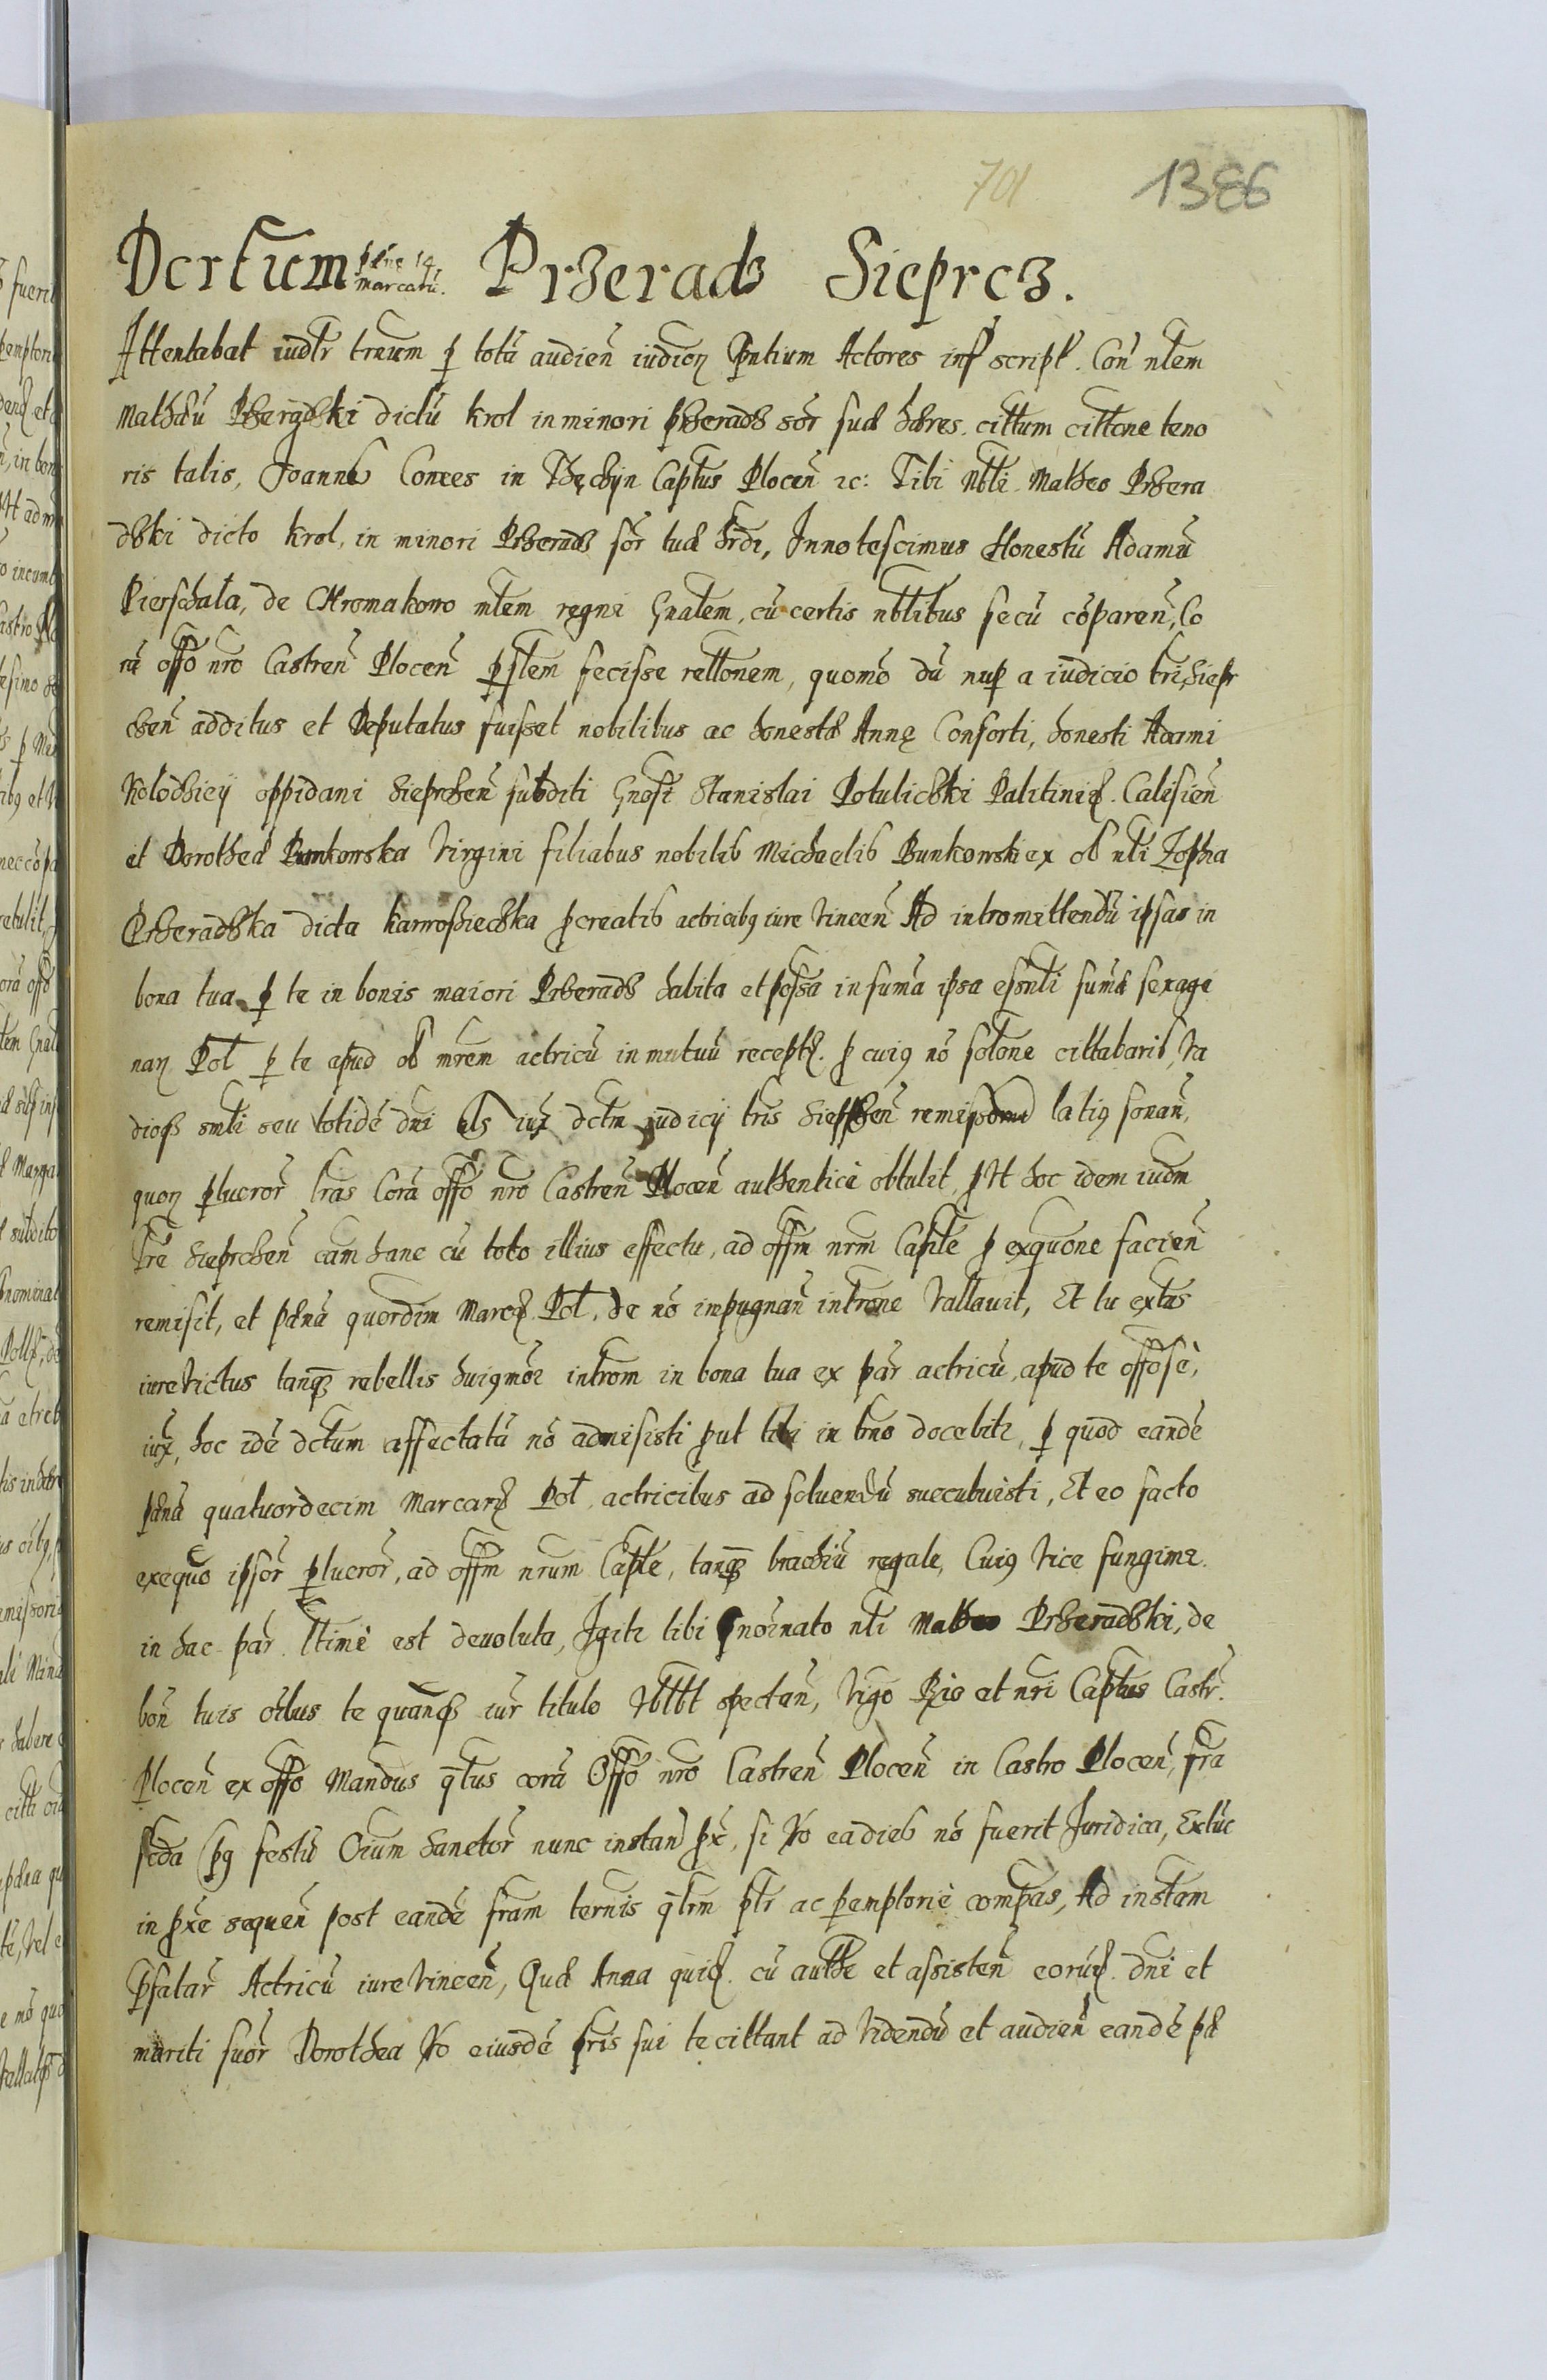 701 1386
Dcrtum pęnę 14 marcarũ. Przeradz Sieprcz.
Attentabat iudlr trnum ꝑ totũ audieñ iudicꝝ p̃ntium Actores inf script. Coñ nblem
Mathæũ Przeradzki dictũ Krol in minori przeradz sor̃ suæ hæres. cittum cittone teno
ris talis, Joannes Comes in Thęchyn Captus Plocen̄ ꝛc: Tibi Nbli Matheo Przera
dzki dicto Krol, in minori Przeradz sor̃ tuæ hrdi, Innotescimus Honestũ Adamũ
Pierschała, de Chromakowo mltem regni Gnalem, cũ certis nblibus secũ cõpareñ, Co
rã offo nro Castreñ Plocen̄ p̱slem fecisse rellonem, quomõ dũ nuꝑ a iudicio tri, siepr
czeñ additus et Deputatus fuisset nobilibus ac honestæ Annę Consorti, honesti Adami
Kolodzieij oppidani Sieprczeñ subditi Gnosi Stanislai Potuliczki Palitinię. Calisień
et Dorotheæ Bunkowska Virgini filiabus nobilis Michaelis Bunkowski ex ol nli Zophia
Przeradzka dicta karwosiechka ꝓcreatis actricibꝯ iure vinceñ Ad intromittendũ ipsas in
bona tua ꝑ te in bonis maiori Przeradz habita et possa in sum̃a ipsa essnli sum̃æ sexage
naꝝ Pol ꝑ te apud ol mr̃em actricũ in mutuũ receptę. ꝓ cuiꝯ nõ solone cittabaris, va
dioqꝫ smli seu totidẽ dni als iux̃ dctm iudicij tris Sieprczeñ remissoriũ latiꝯ sonañ,
quoꝝ ꝑlucror̃ lras Corã offo nro Castreñ Plocen̄ authenticè obtulit, ꝓut hoc idem iudm
Tre Sieprchen̄ cam hanc cũ toto illius effectu, ad offm nrm Caple ꝓ exquone facień
remisit, et pænã quordim Marcę Pol. de nõ inpugnañ introne vallauit, Et tu extas
iure victus tanqꝫ rebellis huiꝯmõi introm in bona tua ex par̃ actricũ, apud te offosè,
iux̃, hoc idẽ dctum affectatã nõ admisisti ꝓut tibi in tr̃no docebitr, ꝑ quod eandẽ
pænã quatuordecim Marcarę Pol, actricibus ad soluendũ succubuisti, Et eo facto
exequo ipsor̃ ꝑlucror̃, ad offm nrum Caple, tanqꝫ brachiũ regale, Cuiꝯ vice fungimr.
in hac par̃ ltimè est deuoluta, Igitr tibi noĩnato nli Matheo Przeradzki, de
boñ tuis oĩbus te quanqꝫ iur̃ titulo vblbt spectañ, vigo Rio et nri Captus Castr.
Plocen̄ ex offo Mandus q̃tus corã Offo nro Castreñ Plocen̄ in Castro Plocen̄, fra
scda pꝯ festũ Oĩum Sanctor̃ nunc instañ px̃, si vo ea dies nõ fuerit Juridica, Extũc
in px̃e sequeñ post eandẽ fram ternis q̃trm ptr ac ꝑemptoriè compas, Ad instam
p̃fatar̃ Actricũ iure vinceñ, Quæ Anna quię. cũ authe et assisteñ eorũę. dni et
mariti suor̃ Dorothea vo eiusdẽ pris sui te cittant ad videndũ et audień eandẽ pæ